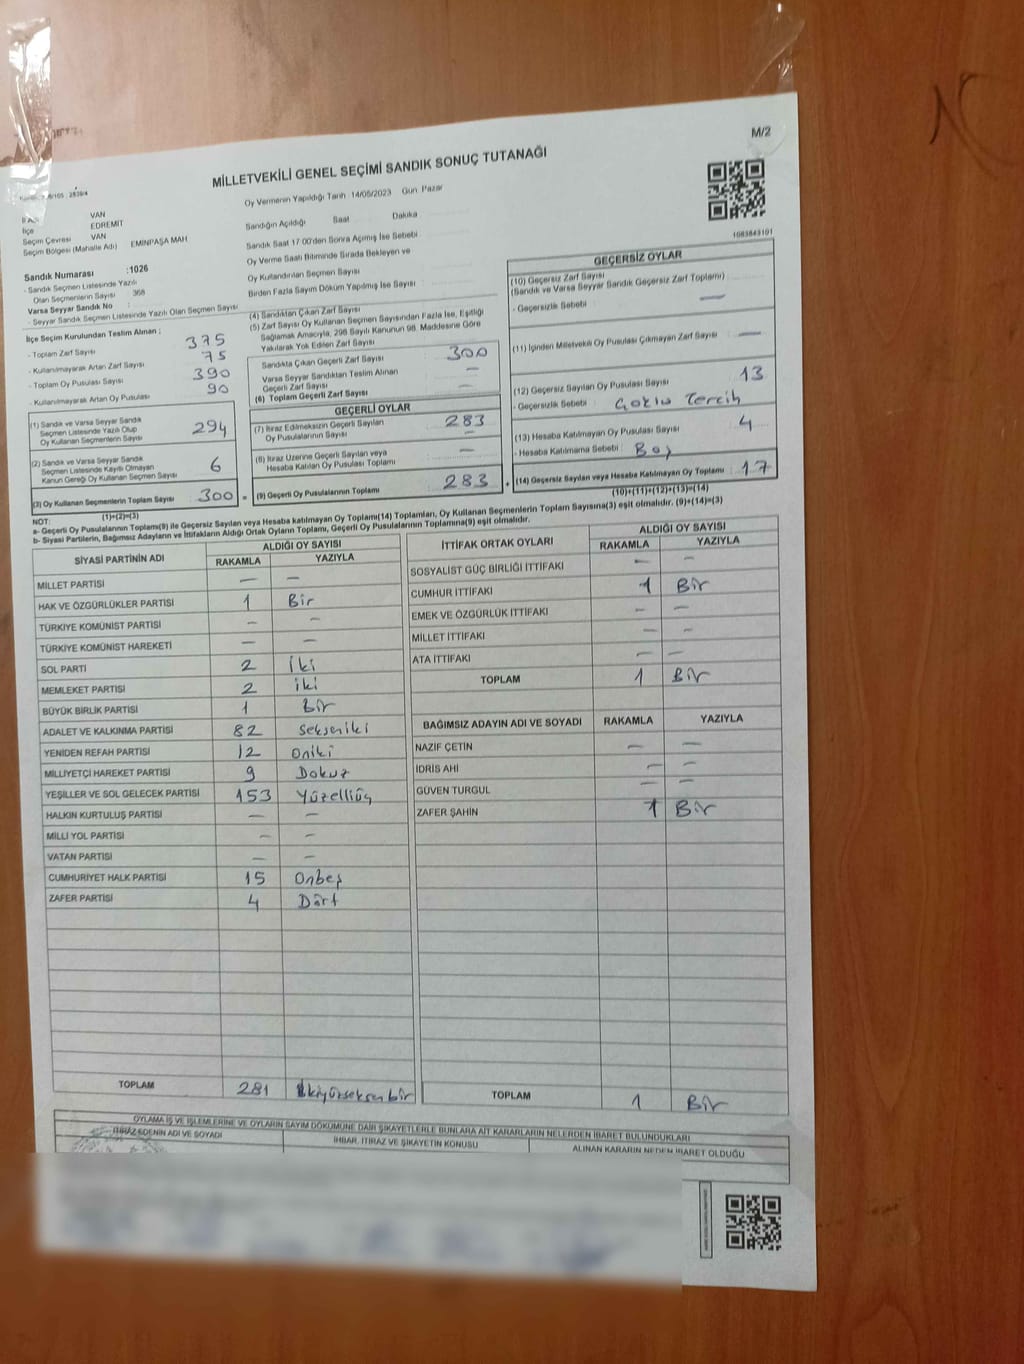 M/2
MİLLETVEKİLİ GENEL SEÇİMİ SANDIK SONUÇ TUTANAĞI
Oy Vermenin Yapıldığı Tarih :14/05/2023 Gün: Pazar
VAN
İlçe EDREMIT
Seçim Çevresi VAN
Seçim Bölgesi (Mahalle Adı) EMINPAŞA MAH
Sandığın Açıldığı Saat Dakika
Sandık Saat 17:00'den Sonra Açılmış İse Sebebi
Oy Verme Saati Bitiminde Sırada Bekleyen ve
Oy Kullandırılan Seçmen Sayısı
Birden Fazla Sayım Döküm Yapılmış İse Sayısı :
1083843101
Sandık Numarası :1026
- Sandık Seçmen Listesinde Yazılı
Olan Seçmenlerin Sayısı 368
Varsa Seyyar Sandık No :
- Seyyar Sandık Seçmen Listesinde Yazılı Olan Seçmen Sayısı
İlçe Seçim Kurulundan Teslim Alınan ;
- Toplam Zarf Sayısı 375
- Kullanılmayarak Artan Zarf Sayısı 75
- Toplam Oy Pusulası Sayısı 390
- Kullanılmayarak Artan Oy Pusulası 90
(1) Sandık ve Varsa Seyyar Sandık
Seçmen Listesinde Yazılı Olup
Oy Kullanan Seçmenlerin Sayısı 294
(2) Sandık ve Varsa Seyyar Sandık
Seçmen Listesinde Kayıtlı Olmayan
Kanun Gereği Oy Kullanan Seçmen Sayısı 6
(3) Oy Kullanan Seçmenlerin Toplam Sayısı 300
(1)+(2)=(3)
(4) Sandıktan Çıkan Zarf Sayısı
(5) Zarf Sayısı Oy Kullanan Seçmen Sayısından Fazla İse, Eşitliği
Sağlamak Amacıyla, 298 Sayılı Kanunun 98. Maddesine Göre
Yakılarak Yok Edilen Zarf Sayısı
Sandıkta Çıkan Geçerli Zarf Sayısı 300
Varsa Seyyar Sandıktan Teslim Alınan
Geçerli Zarf Sayısı —
(6) Toplam Geçerli Zarf Sayısı —
GEÇERLİ OYLAR
(7) İtiraz Edilmeksizin Geçerli Sayılan
Oy Pusulalarının Sayısı 283
(8) İtiraz Üzerine Geçerli Sayılan veya
Hesaba Katılan Oy Pusulası Toplamı —
(9) Geçerli Oy Pusulalarının Toplamı 283
GEÇERSİZ OYLAR
(10) Geçersiz Zarf Sayısı
(Sandık ve Varsa Seyyar Sandık Geçersiz Zarf Toplamı)
- Geçersizlik Sebebi —
(11) İçinden Milletvekili Oy Pusulası Çıkmayan Zarf Sayısı —
(12) Geçersiz Sayılan Oy Pusulası Sayısı 13
- Geçersizlik Sebebi Çoklu Tercih
(13) Hesaba Katılmayan Oy Pusulası Sayısı 4
- Hesaba Katılmama Sebebi : Boş
(14) Geçersiz Sayılan veya Hesaba Katılmayan Oy Toplamı : 17
(10)+(11)+(12)+(13)=(14)
NOT:
a- Geçerli Oy Pusulalarının Toplamı(9) ile Geçersiz Sayılan veya Hesaba katılmayan Oy Toplamı(14) Toplamları, Oy Kullanan Seçmenlerin Toplam Sayısına(3) eşit olmalıdır. (9)+(14)=(3)
b- Siyasi Partilerin, Bağımsız Adayların ve İttifakların Aldığı Ortak Oyların Toplamı, Geçerli Oy Pusulalarının Toplamına(9) eşit olmalıdır.
SİYASİ PARTİNİN ADI ALDIĞI OY SAYISI
RAKAMLA YAZIYLA
MİLLET PARTİSİ — —
HAK VE ÖZGÜRLÜKLER PARTİSİ 1 Bir
TÜRKİYE KOMÜNİST PARTİSİ — —
TÜRKİYE KOMÜNİST HAREKETİ — —
SOL PARTİ 2 iki
MEMLEKET PARTİSİ 2 iki
BÜYÜK BİRLİK PARTİSİ 1 Bir
ADALET VE KALKINMA PARTİSİ 82 Sekseniki
YENİDEN REFAH PARTİSİ 12 Oniki
MİLLİYETÇİ HAREKET PARTİSİ 9 Dokuz
YEŞİLLER VE SOL GELECEK PARTİSİ 153 Yüzelliüç
HALKIN KURTULUŞ PARTİSİ — —
MİLLİ YOL PARTİSİ — —
VATAN PARTİSİ — —
CUMHURİYET HALK PARTİSİ 15 Onbeş
ZAFER PARTİSİ 4 Dört
TOPLAM 281 ikiyüzseksenbir
İTTİFAK ORTAK OYLARI ALDIĞI OY SAYISI
RAKAMLA YAZIYLA
SOSYALİST GÜÇ BİRLİĞİ İTTİFAKI — —
CUMHUR İTTİFAKI 1 Bir
EMEK VE ÖZGÜRLÜK İTTİFAKI — —
MİLLET İTTİFAKI — —
ATA İTTİFAKI — —
TOPLAM 1 Bir
BAĞIMSIZ ADAYIN ADI VE SOYADI RAKAMLA YAZIYLA
NAZİF ÇETİN — —
İDRİS AHİ — —
GÜVEN TURGUL — —
ZAFER ŞAHİN 1 Bir
TOPLAM 1 Bir
OYLAMA İŞ VE İŞLEMLERİNE VE OYLARIN SAYIM DÖKÜMÜNE DAİR ŞİKAYETLERLE BUNLARA AİT KARARLARIN NELERDEN İBARET BULUNDUKLARI
İTİRAZ EDENİN ADI VE SOYADI İHBAR, İTİRAZ VE ŞİKAYETİN KONUSU ALINAN KARARIN NEDEN İBARET OLDUĞU